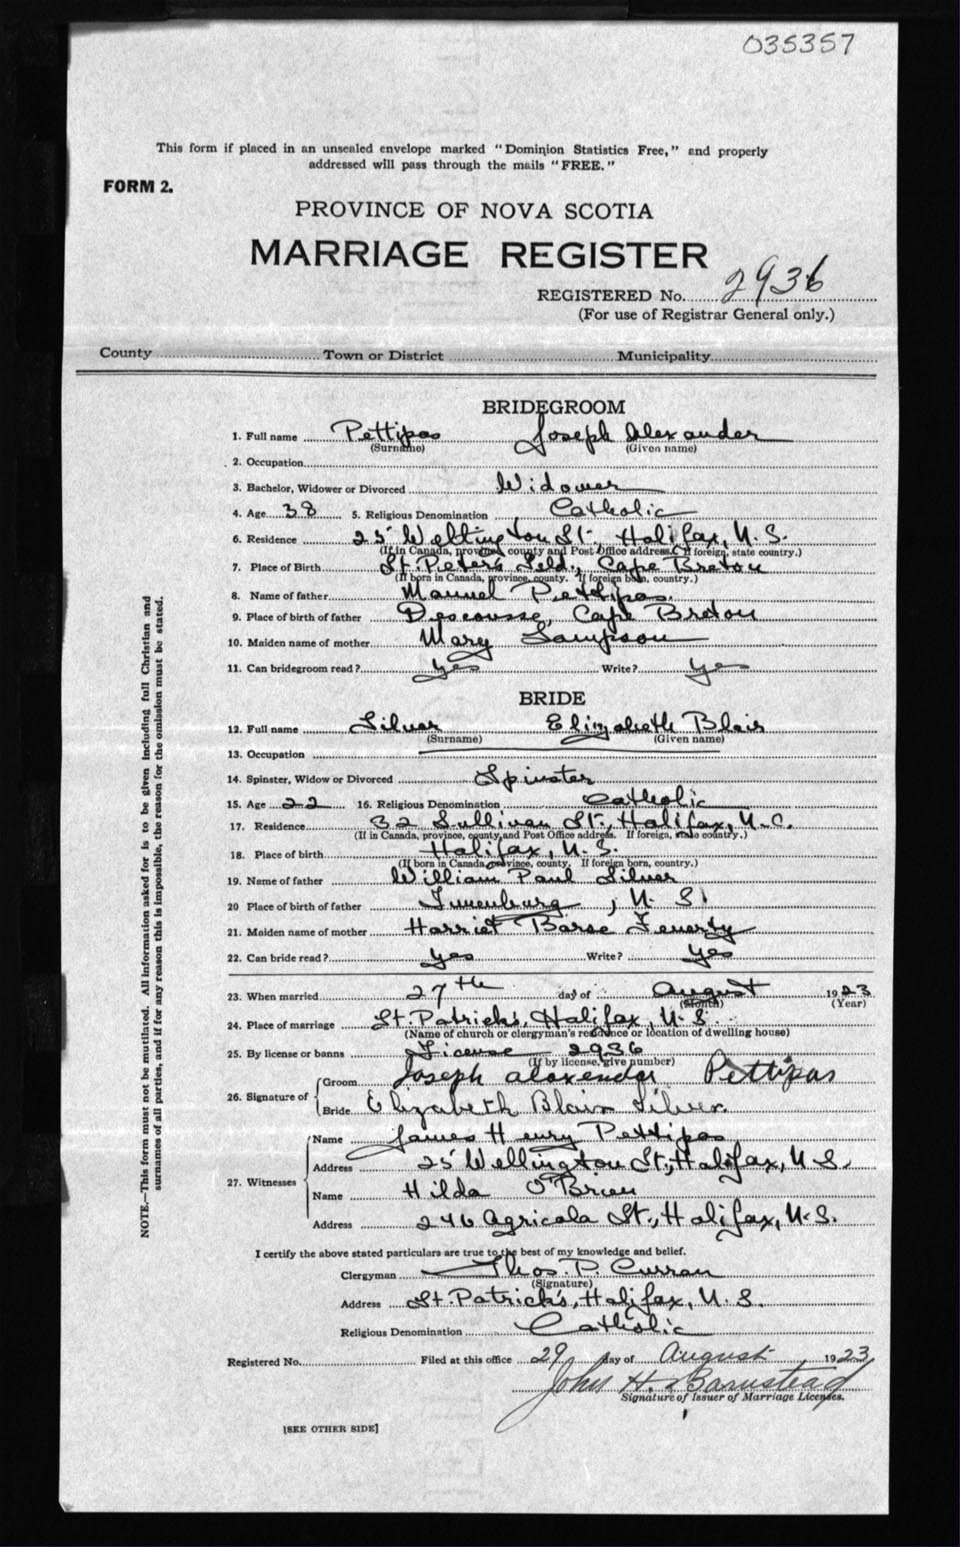 035357
This form if placed in an unsealed envelope marked "Dominion Statistics Free," and properly
addressed will pass through the mails "FREE."
FORM 2.
PROVINCE OF NOVA SCOTIA
MARRIAGE REGISTER
REGISTERED No. 2936
(For use of Registrar General only.)
County Town or District Municipality
BRIDEGROOM
1. Full name Pettipas Joseph Alexander
(Surname) (Given name)
2. Occupation
3. Bachelor, Widower or Divorced Widower
4. Age 38 5. Religious Denomination Catholic
6. Residence 25 Wellington St. Halifax, N.S.
(If in Canada, province, county and Post Office address. If foreign, state country.)
7. Place of Birth St. Peter's Cape Breton
(If born in Canada, province, county. If foreign born, country.)
8. Name of father Manuel Pettipas.
9. Place of birth of father Descousse, Cape Breton
10. Maiden name of mother Mary Sampson
11. Can bridegroom read? yes Write? yes
BRIDE
12. Full name Silver Elizabeth Blair
(Surname) (Given name)
13. Occupation
14. Spinster, Widow or Divorced Spinster
15. Age 22 16. Religious Denomination Catholic
17. Residence 32 Sullivan St., Halifax, N.S.
(If in Canada, province, county and Post Office address. If foreign, state country.)
18. Place of birth Halifax, N.S.
(If born in Canada, province, county. If foreign born, country.)
19. Name of father William Paul Silver
20 Place of birth of father Lunenburg, N.S.
21. Maiden name of mother Harriet Fenerty
22. Can bride read? yes Write? yes
23. When married 27th day of August 1923
(Month) (Year)
24. Place of marriage St. Patrick's, Halifax, N.S.
(Name of church or clergyman's residence or location of dwelling house)
25. By license or banns License 2936
(If by license, give number)
26. Signature of Groom Joseph Alexander Pettipas
Bride Elizabeth Blair Silver.
27. Witnesses Name James Henry Pettipas
Address 25 Wellington St., Halifax, N.S.
Name Hilda O'Brien
Address 246 Agricola St., Halifax, N.S.
I certify the above stated particulars are true to the best of my knowledge and belief.
Clergyman Thos. P. Curran
(Signature)
Address St. Patrick's, Halifax, N.S.
Religious Denomination Catholic
Registered No. Filed at this office 29 day of August 1923
John H. Barnstead
Signature of Issuer of Marriage Licenses.
[SEE OTHER SIDE]
NOTE.—This form must not be mutilated. All information asked for is to be given including full Christian and
surnames of all parties, and if for any reason this is impossible, the reason for the omission must be stated.